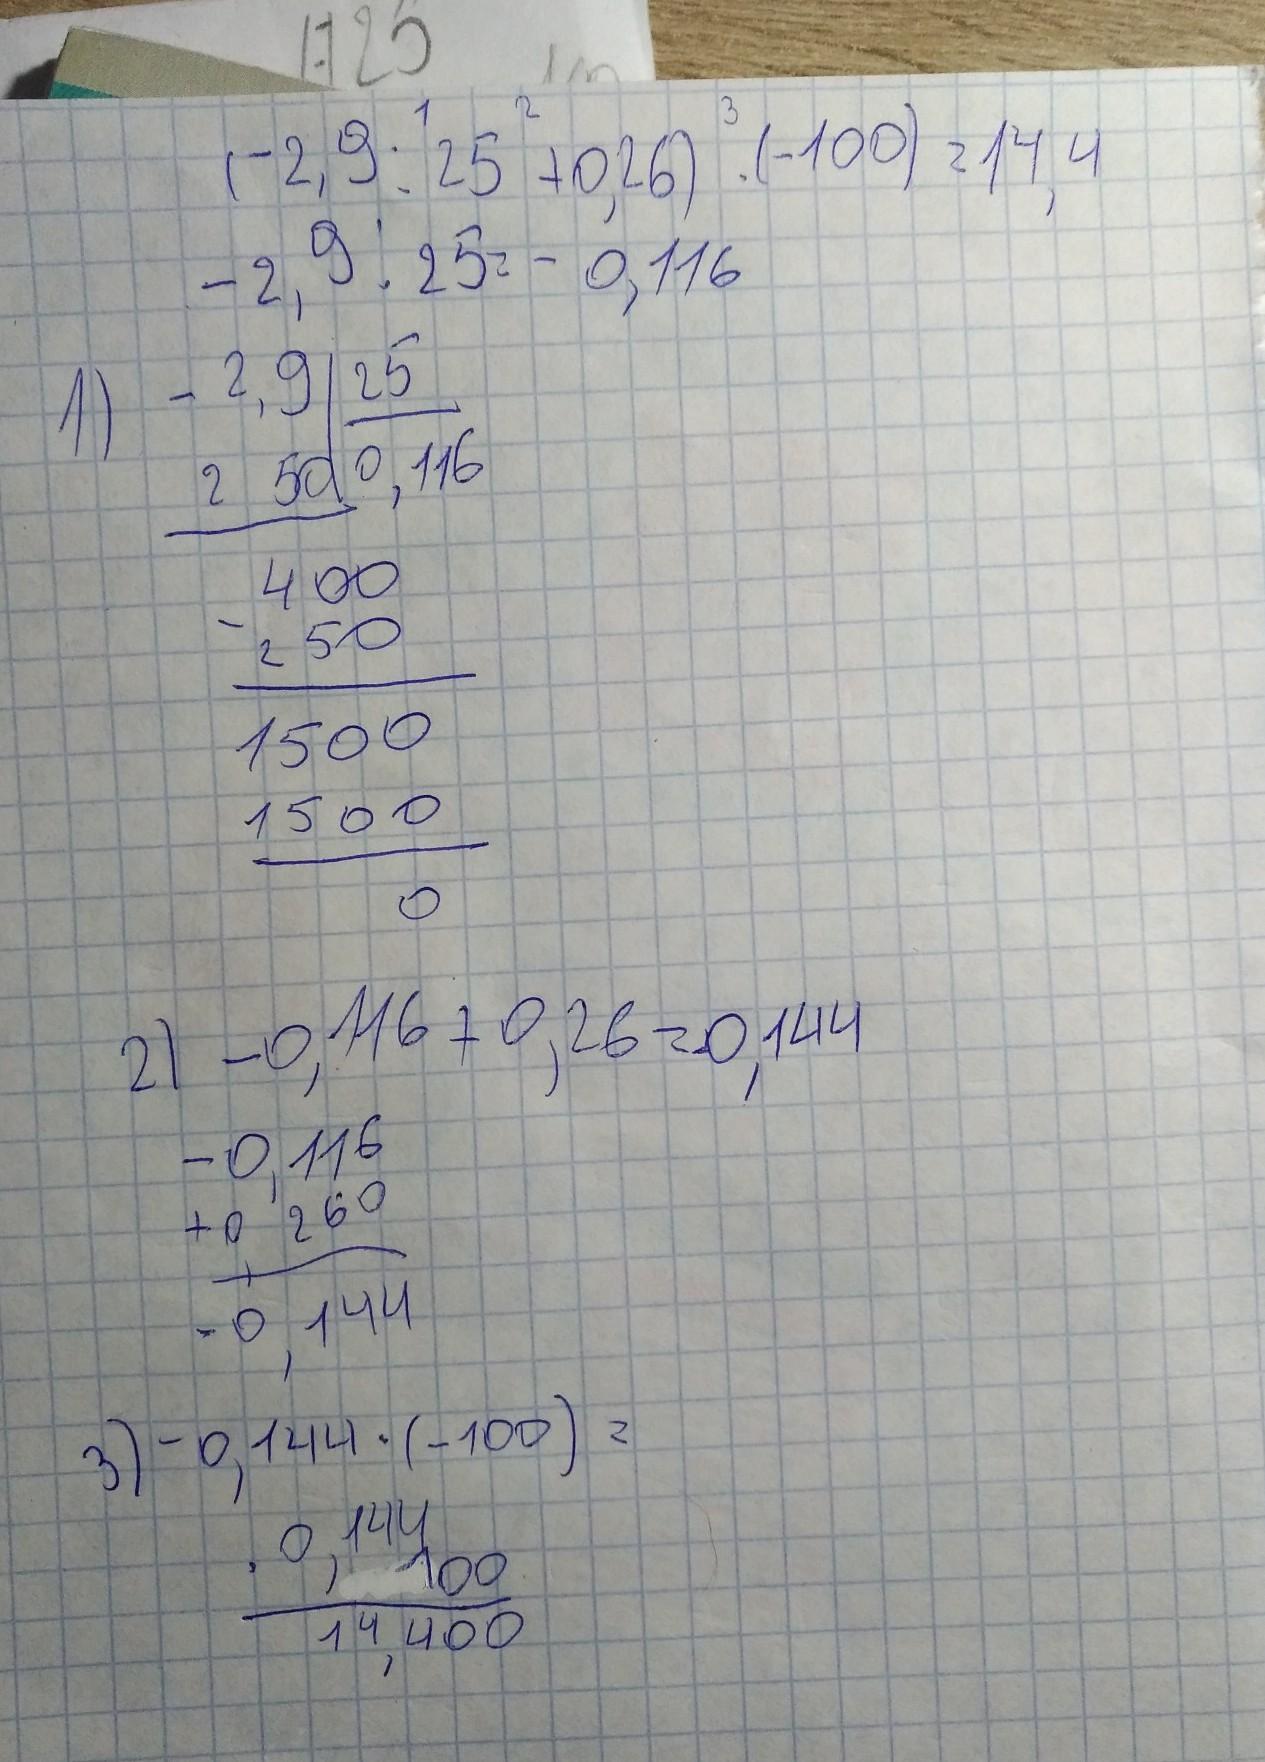 А25
1 2 3
(-2,9 : 25 + 0,26) · (-100) = 14,4
-2,9 : 25 = - 0,116
1) - 2,9 | 25
2 50 | 0,116
400
- 250
1500
1500
0
2) -0,116 + 0,26 = -0,144
-0,116
+0 260
-0,144
3) -0,144 · (-100) =
· 0,144
100
14,400